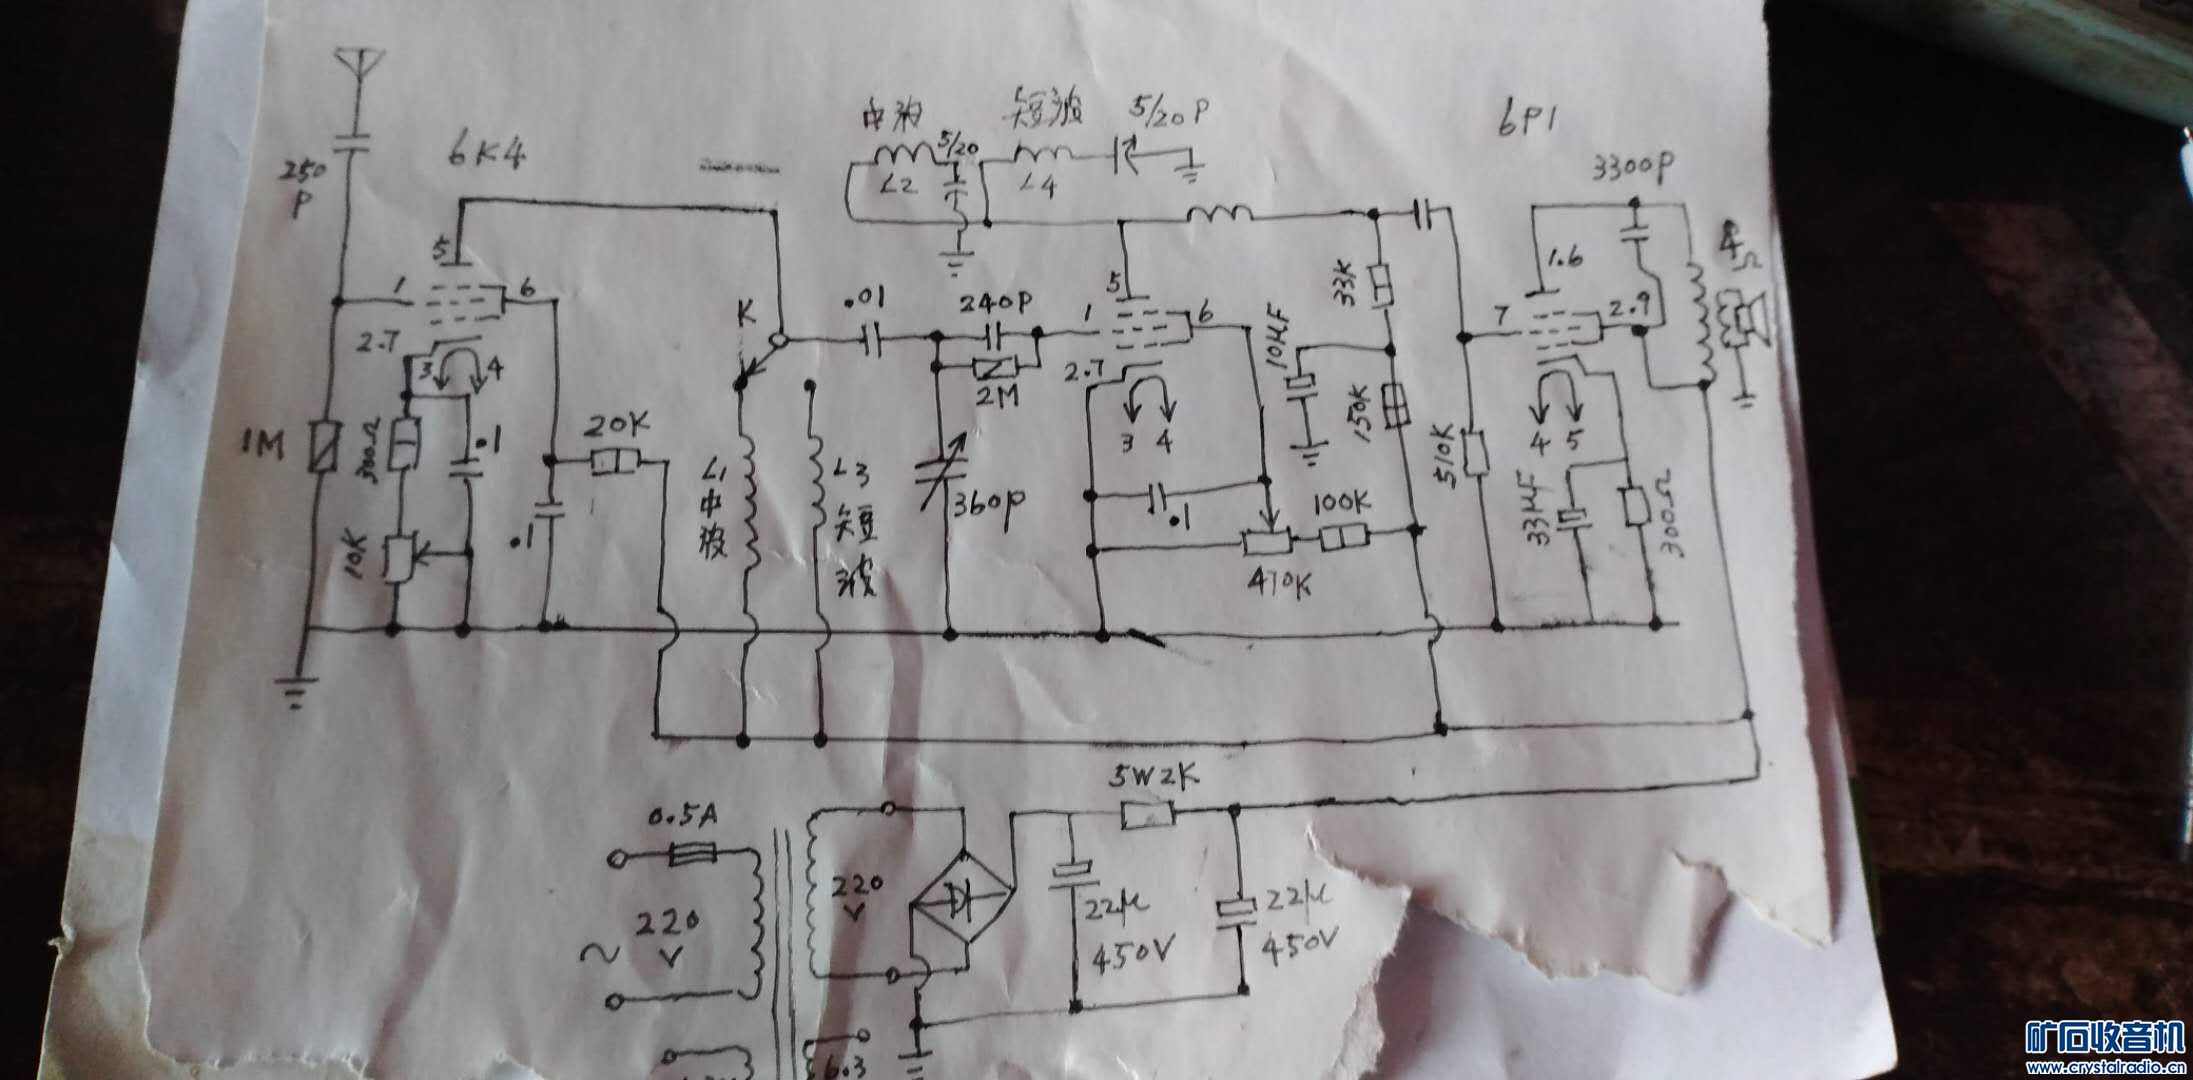 中波
短波
5/20P
6P1
6K4
5/20
3300P
250
P
L2
L4
4Ω
5
1.6
1
6
K
.01
240P
5
1
6
10μF
33K
7
2.9
2.7
3
4
2M
2.7
150K
1M
300Ω
.1
20K
L1
中波
L3
短波
360P
3
4
.1
100K
510K
4
5
33μF
300Ω
10K
.1
470K
5W2K
0.5A
220
V
~
220
V
22μ
450V
22μ
450V
6.3
矿石收音机
www.crystalradio.cn